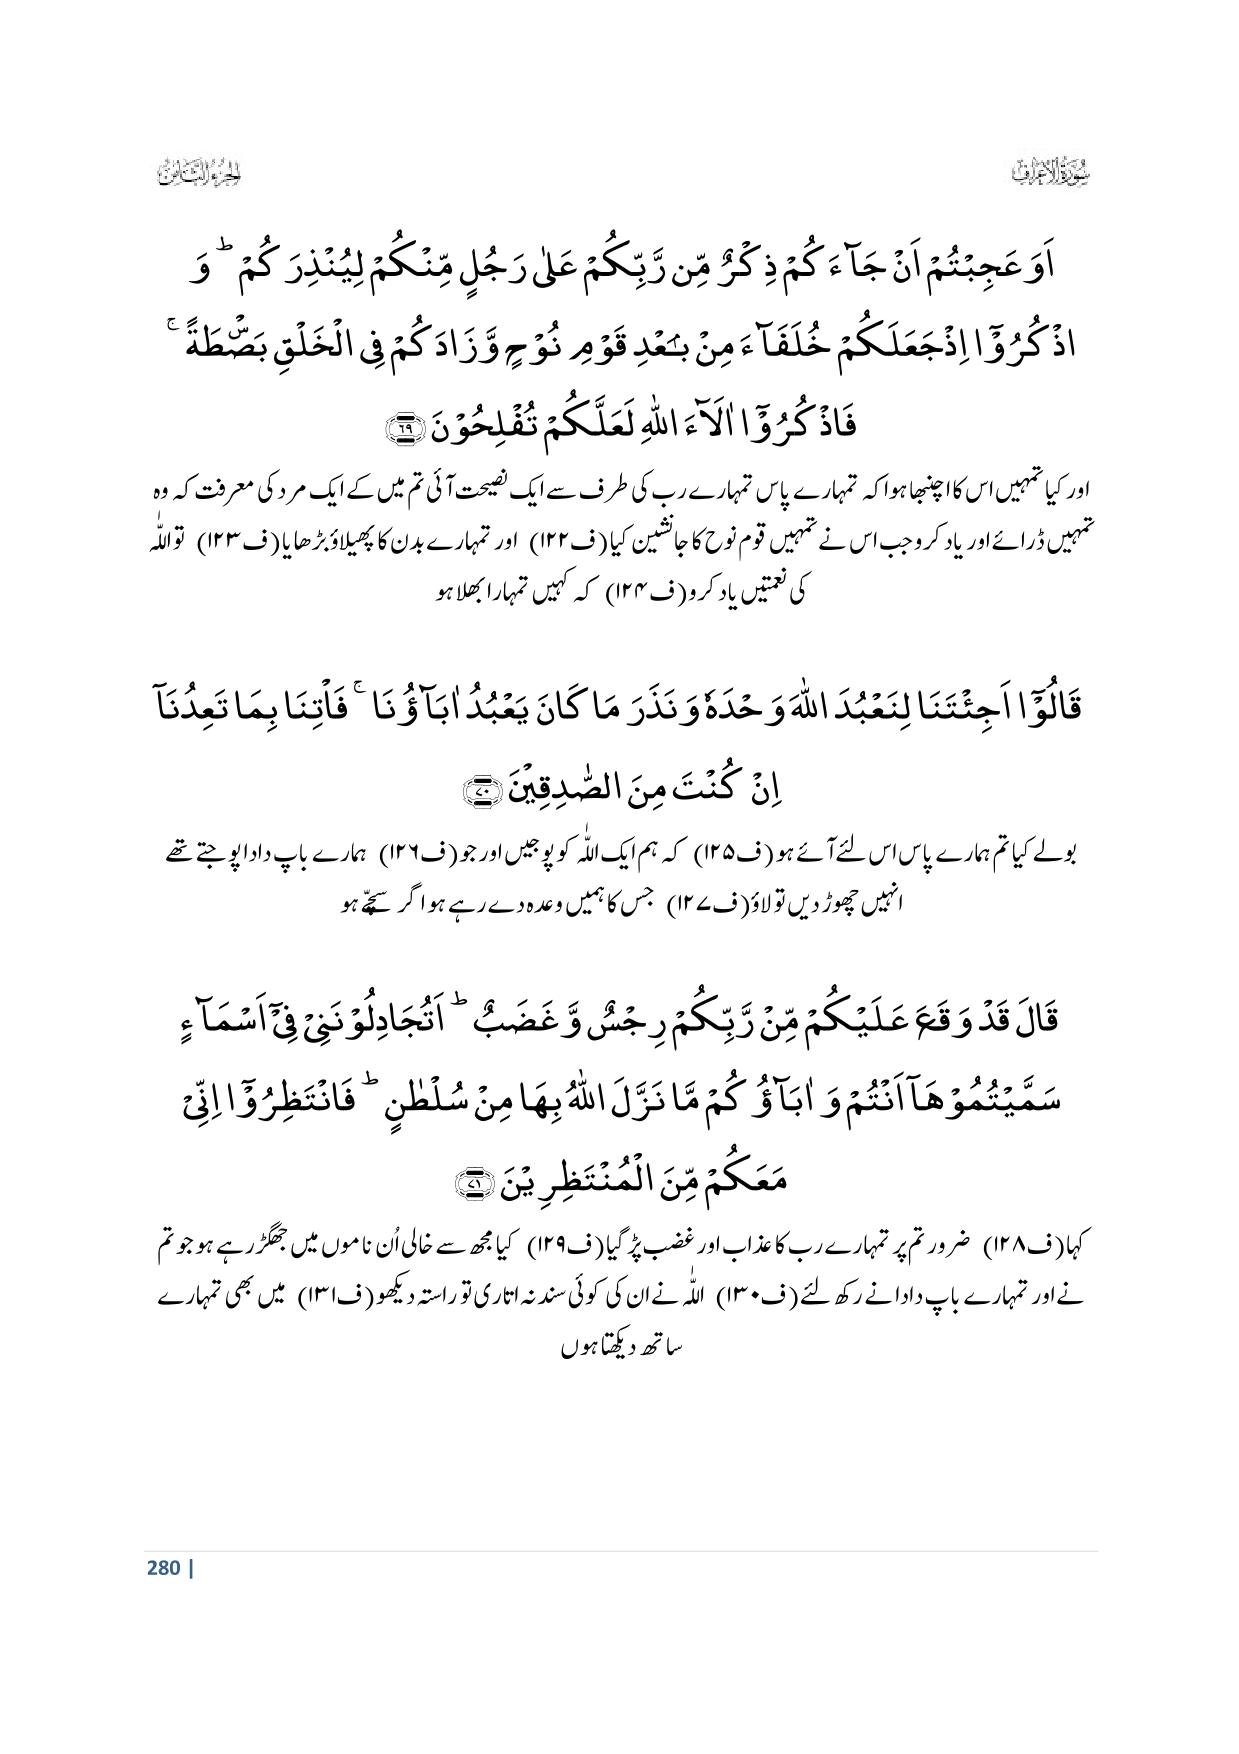 سُوۡرَةُ الۡاَعۡرَافِ
الجزء الثامن
اَوَ عَجِبۡتُمۡ اَنۡ جَآءَ كُمۡ ذِكۡرٌ مِّن رَّبِّكُمۡ عَلٰى رَجُلٍ مِّنۡكُمۡ لِيُنۡذِرَ كُمۡ ؕ وَ
اذۡكُرُوۡۤا اِذۡ جَعَلَكُمۡ خُلَفَآءَ مِنۡۢ بَعۡدِ قَوۡمِ نُوۡحٍ وَّ زَادَكُمۡ فِى الۡخَلۡقِ بَصۜۡطَةً ۚ
فَاذۡكُرُوۡۤا اٰلَآءَ اللّٰهِ لَعَلَّكُمۡ تُفۡلِحُوۡنَ ﴿۶۹﴾
اور کیا تمہیں اس کا اچنبھا ہوا کہ تمہارے پاس تمہارے رب کی طرف سے ایک نصیحت آئی تم میں کے ایک مرد کی معرفت کہ وہ
تمہیں ڈرائے اور یاد کرو جب اس نے تمہیں قوم نوح کا جانشین کیا (ف۱۲۲) اور تمہارے بدن کا پھیلاؤ بڑھایا (ف۱۲۳) تو اللّٰہ
کی نعمتیں یاد کرو (ف۱۲۴) کہ کہیں تمہارا بھلا ہو
قَالُوۡۤا اَجِئۡتَنَا لِنَعۡبُدَ اللّٰهَ وَحۡدَهٗ وَ نَذَرَ مَا كَانَ يَعۡبُدُ اٰبَآؤُنَا ۚ فَاۡتِنَا بِمَا تَعِدُنَاۤ
اِنۡ كُنۡتَ مِنَ الصّٰدِقِيۡنَ ﴿۷۰﴾
بولے کیا تم ہمارے پاس اس لئے آئے ہو (ف۱۲۵) کہ ہم ایک اللّٰہ کو پوجیں اور جو (ف۱۲۶) ہمارے باپ دادا پوجتے تھے
انہیں چھوڑ دیں تو لاؤ (ف۱۲۷) جس کا ہمیں وعدہ دے رہے ہو اگر سچّے ہو
قَالَ قَدۡ وَقَعَ عَلَيۡكُمۡ مِّنۡ رَّبِّكُمۡ رِجۡسٌ وَّ غَضَبٌ ؕ اَتُجَادِلُوۡنَنِىۡ فِىۡۤ اَسۡمَآءٍ
سَمَّيۡتُمُوۡهَاۤ اَنۡتُمۡ وَ اٰبَآؤُ كُمۡ مَّا نَزَّلَ اللّٰهُ بِهَا مِنۡ سُلۡطٰنٍ ؕ فَانۡتَظِرُوۡۤا اِنِّىۡ
مَعَكُمۡ مِّنَ الۡمُنۡتَظِرِيۡنَ ﴿۷۱﴾
کہا (ف۱۲۸) ضرور تم پر تمہارے رب کا عذاب اور غضب پڑ گیا (ف۱۲۹) کیا مجھ سے خالی اُن ناموں میں جھگڑ رہے ہو جو تم
نے اور تمہارے باپ دادا نے رکھ لئے (ف۱۳۰) اللّٰہ نے ان کی کوئی سند نہ اتاری تو راستہ دیکھو (ف۱۳۱) میں بھی تمہارے
ساتھ دیکھتا ہوں
280 |